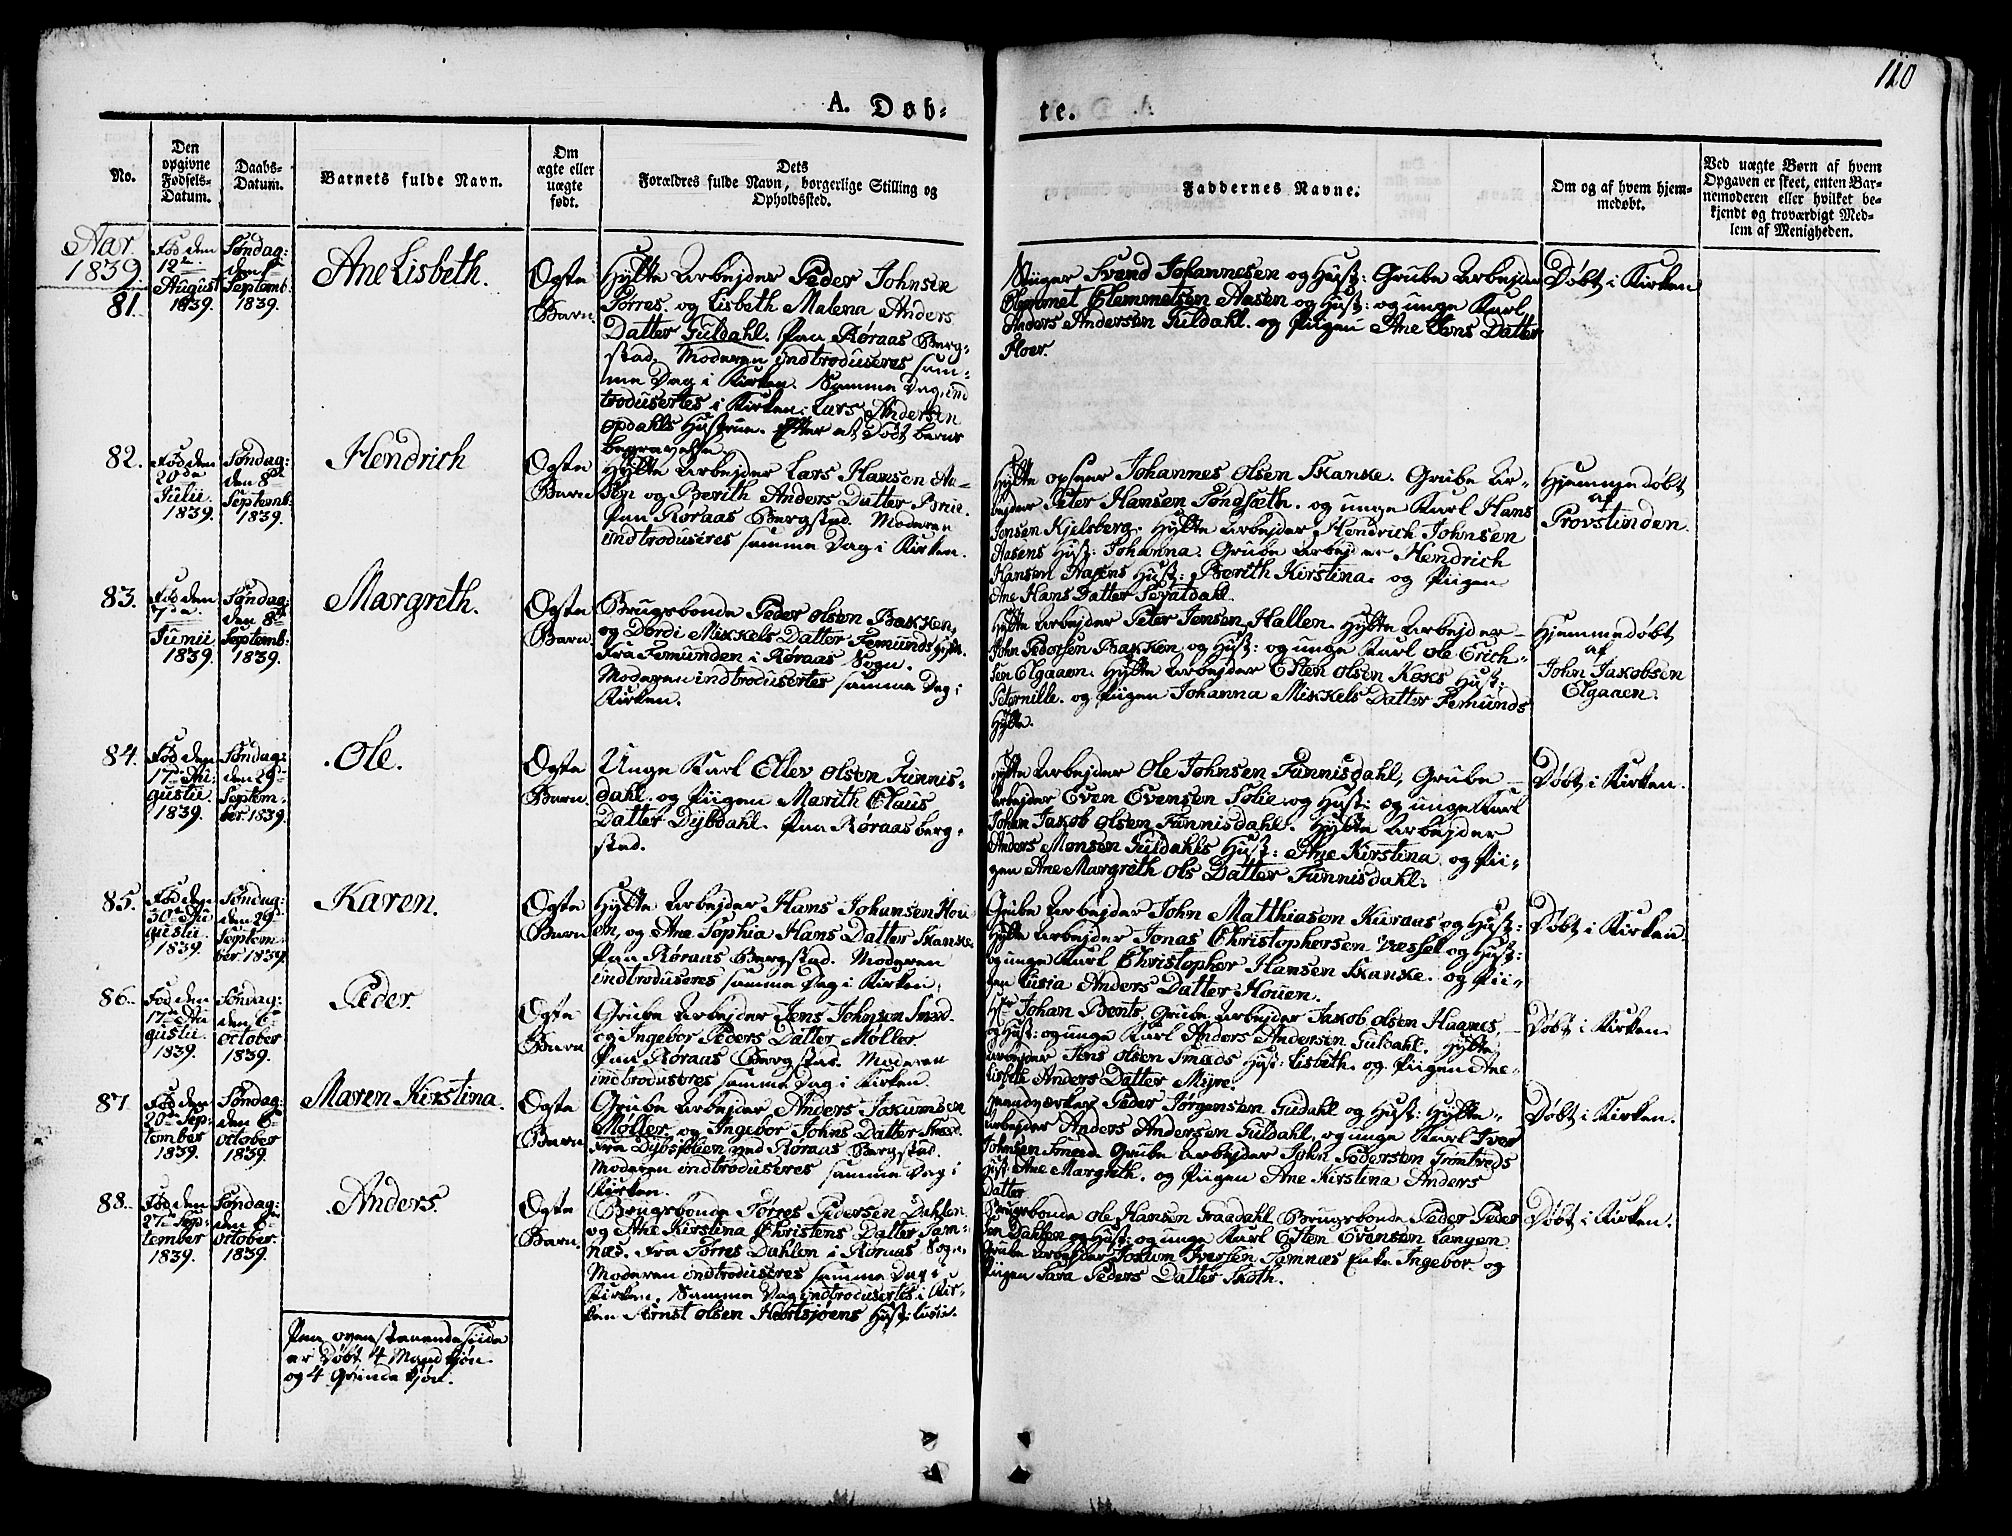 110
A. Døb-
te.
No.
Den opgivne Fødsels-Datum.
Daabs-Datum.
Barnets fulde Navn.
Om ægte eller uægte født.
Dets
Forældres fulde Navn, borgerlige Stilling og
Opholdssted.
Faddernes Navne.
Om og af hvem hjem-
medøbt.
Ved uægte Børn af hvem
Opgaven er skeet, enten Bar-
nemoderen eller hvilket be-
kjendt og troværdigt Med-
lem af Menigheden.
Aar
1839
81.
Fød den
12te
August
1839.
Søndag:
den
Septemb:
1839.
Ane Lisbeth.
Ægte
Barn.
Hytte Arbejder Peder Johnsen
Torres. og Lisbeth Malena Anders
Datter Guldahl. Paa Røraas Berg-
stad. Moderen indtroduseres sam-
me Dag i Kirken. Samme Dag, ind
trodusertes i Kirken. Lars Andersen
Opdahls Hustrue. Efter et Død barns
begravelse.
Svend Johannesen og Hust: Grube Arbejder
Clemmet Clemmetsen Aasen og Hust: og unge Karl,
Anders Andersen Guldahl. og Piigen Ane Jens Datter
Floer.
Døbt i Kirken
82.
Fød den
20de
Julii.
1839.
Søndag:
den 8de
Septemb:
1839.
Hendrich
Ægte
Barn
Hytte Arbejder Lars Hansen Aa-
sen og Berith Anders Datter Brue.
Paa Røraas Bergstad. Moderen
indtroduseres samme Dag i Kirken.
Hytte opseer Johannes Olsen Skanke. Grube Ar-
bejder Peter Hansen Tøndsæth. og unge Karl Hans
Jonsen Kjelsberg. Hytte Arbejder Hendrich Johnsen
Aasens Hust: Johanna. Grube Arbejder Hendrich
Hansen Aasens Hust: Berith Kirstina. og Piigen
Ane Hans Datter
Hjemmedøbt
af
Provstinden.
83.
Fød den
7de
Junii
1839.
Søndag:
den 8de
Septemb:
1839.
Margreth.
Ægte
Barn.
Brugsbonde Peder Olsen Bakken,
og Dordi Mikkels Datter Femunds Hytte.
Fra Femunden i Røraas Sogn.
Moderen indtrodusertes samme Dag i
Kirken.
Hytte Arbejder Peter Jensen Hallen. Hytte Arbejder
John Pedersen Bakken og Hust: og unge Karl Ole Erich-
sen Elgaaen. Hytte Arbejder Esten Olsen Kokx Hust:
Peternille. og Piigen Johanna Mikkels Datter Femunds
Hytte.
Hjemmedøbt
af
John Jakobsen
Elgaaen.
84.
Fød den
17de Au:
gustii.
1839.
Søndag:
den 29de
Septem-
ber 1839.
Ole.
Ægte
Barn
Unge Karl Ellev Olsen Funnis-
dahl. og Piigen Marith Claus
Datter Dybdahl. Paa Røraas berg-
stad.
Hytte Arbejder Ole Johnsen Funnisdahl, Grube
Arbejder Even Evensen Solie og Hust: og unge Karl
Johan Jakob Olsen Funnisdahl. Hytte Arbejder
Anders Monsen Guldahls Hust: Ane Kirstina. og Pii-
gen Ane Margreth Ols Datter Funnisdahl.
Døbt i Kirken.
85.
Fød den
30te Au
gustii.
1839.
Søndag:
den 29de
Septem-
ber 1839.
Karen.
Ægte
Barn
Hytte Arbejder Hans Johansen Hou-
en, og Ane Sophia Hans Datter Skanke.
Paa Røraas Bergstad. Moderen
indtroduseres samme Dag i Kirken.
Grube Arbejder John Matthiasen Kuraas og Hust:
Hytte Arbejder Jonas Christophersen og Hust:
og unge Karl Christopher Hansen Skanke. og Pii-
gen Lusia Anders Datter Houen.
Døbt i Kirken.
86.
Fød den
17de Au
gustii.
1839.
Søndag:
den 6te
October
1839.
Peder.
Ægte
Barn
Grube Arbejder Jens Johnsen Smed.
og Ingebor Peders Datter Møller
Paa Røraas Bergstad. Moderen
indtroduseres samme Dag i Kirken.
Hr Johan Bents, Grube Arbejder Jakob Olsen Haanes,
og Hust: og unge Karl Anders Andersen Guldahl. Hytte
Arbejder Jens Olsen Smeds Hust: Lisbeth. og Piigen Ane-
Lisbeth Anders Datter Myre.
Døbt i Kirken.
87.
Fød den
20de Sep-
tember
1839.
Søndag:
den 6te
October
1839.
Maren Kirstina.
Ægte
Barn.
Grube Arbejder Anders Jakumsen
Møller, og Ingebor Johns Datter Smed.
Fra ved Røraas Bergstad.
Moderen indtroduseres samme Dag i
Kirken.
Haandværker Peder Jørgensen Gudahl og Hust: Hytte-
Arbejder Anders Andersen Guldahl, og unge Karl Iver
Johnsen Smed. Grube Arbejder John Pedersen
Hust: Ane Margreth. og Piigen Ane Kirstina Anders
Datter
Døbt i Kirken.
88.
Fød den
27de Sep:
tember
1839.
Søndag:
den 6te
October.
1839.
Anders.
Ægte
Barn.
Brugsbonde Torres Pedersen Dahlen,
og Ane Kirstina Christens Datter Tam-
næs. Fra Torres Dahlen i Røraas Sogn.
Moderen indtroduseres samme Dag i
Kirken. Samme Dag indtrodusertes i Kir-
ken Arnst Olsen Hust: Lusie.
Brugsbonde Ole Hansen Graadahl. Brugsbonde Peder Peder
sen Dahlen og Hust: og unge Karl Esten Evensen Langen.
Grube Arbejder Jokum Iversen Tamnæs Enke Ingebor. og
Piigen Sara Peders Datter Skoth.
Døbt i Kirken.
Paa ovenstaaende Siide
er Døbt 4 Mand kjøn.
og 4 Qvinde kjøn.